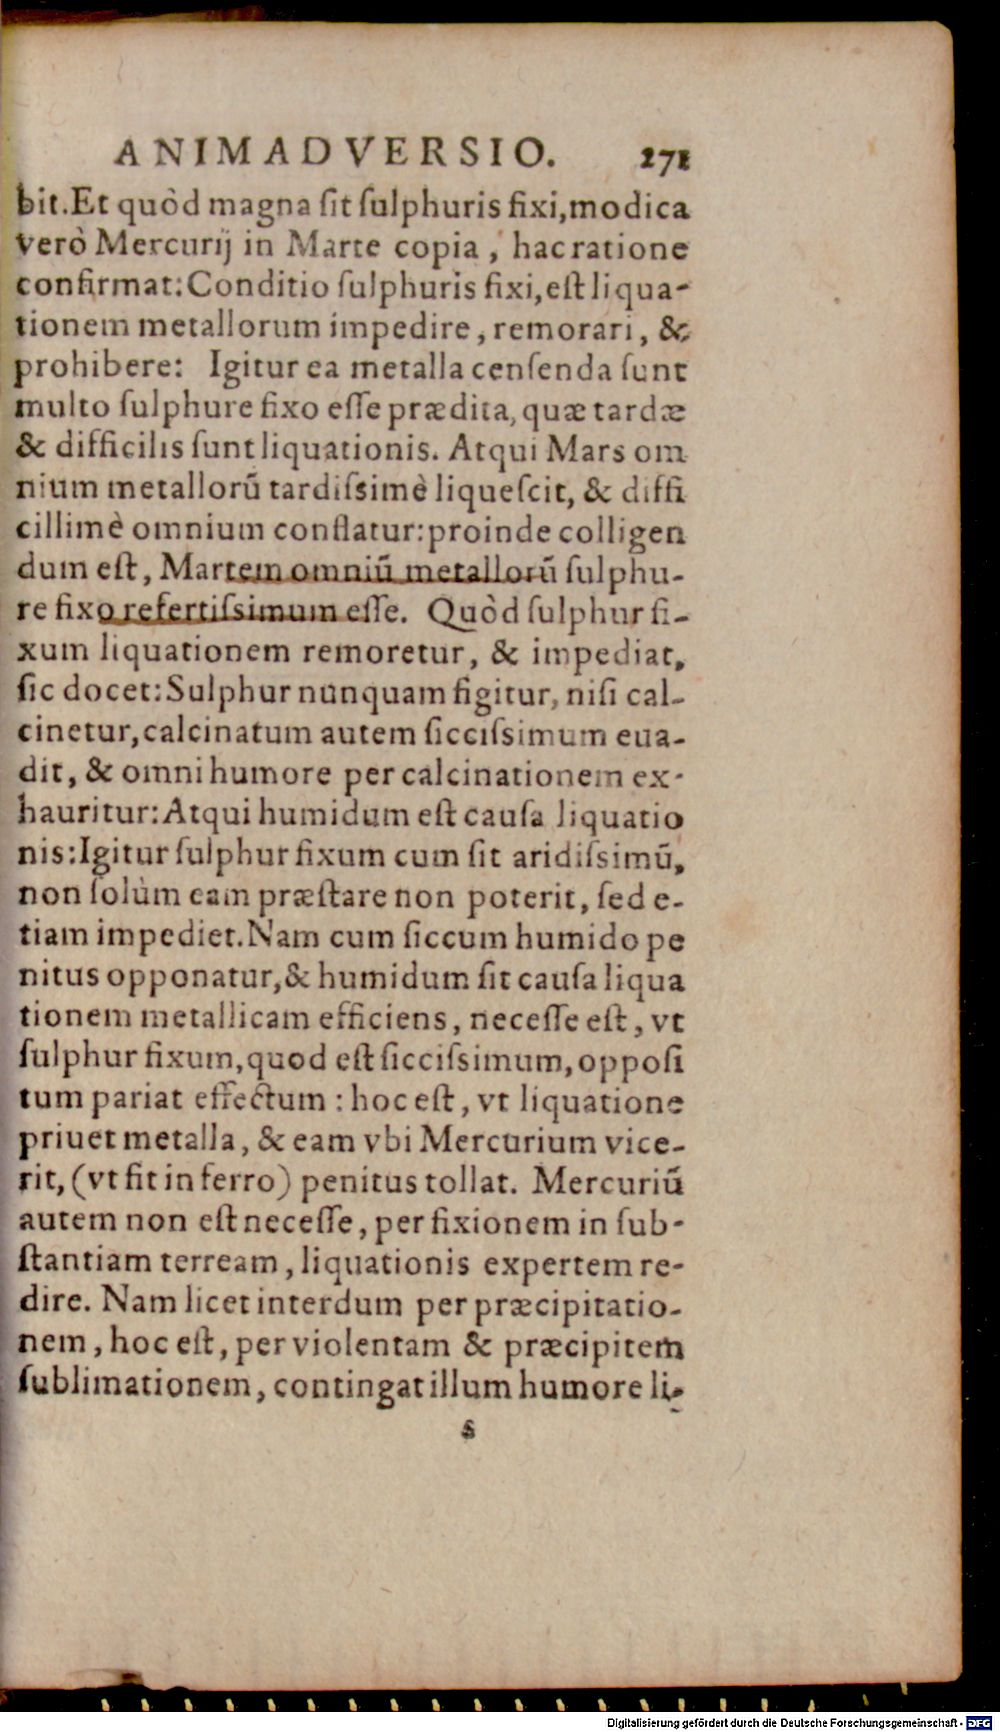 ANIMADVERSIO. 271
bit.Et quòd magna ſit ſulphuris fixi,modica
verò Mercurij in Marte copia , hac ratione
confirmat:Conditio ſulphuris fixi,eſt liqua-
tionem metallorum impedire, remorari, &
prohibere: Igitur ea metalla cenſenda ſunt
multo ſulphure fixo eſſe prædita, quæ tardæ
& difficilis ſunt liquationis. Atqui Mars om
nium metallorũ tardiſsimè liqueſcit, & diffi
cillimè omnium conflatur:proinde colligen
dum eſt, Martem omniũ metallorũ ſulphu-
re fixo refertiſsimum eſſe. Quòd ſulphur fi-
xum liquationem remoretur, & impediat,
ſic docet:Sulphur nunquam figitur, niſi cal-
cinetur,calcinatum autem ſicciſsimum eua-
dit, & omni humore per calcinationem ex-
hauritur:Atqui humidum eſt cauſa liquatio
nis:Igitur ſulphur fixum cum ſit aridiſsimũ,
non ſolùm eam præſtare non poterit, ſed e-
tiam impediet.Nam cum ſiccum humido pe
nitus opponatur,& humidum ſit cauſa liqua
tionem metallicam efficiens, neceſſe eſt, vt
ſulphur fixum,quod eſt ſicciſsimum,oppoſi
tum pariat effectum : hoc eſt, vt liquatione
priuet metalla, & eam vbi Mercurium vice-
rit, (vt fit in ferro) penitus tollat. Mercuriũ
autem non eſt neceſſe, per fixionem in ſub-
ſtantiam terream, liquationis expertem re-
dire. Nam licet interdum per præcipitatio-
nem, hoc eſt, per violentam & præcipitem
ſublimationem, contingat illum humore li-
s
Digitalisierung gefördert durch die Deutsche Forschungsgemeinschaft - DFG